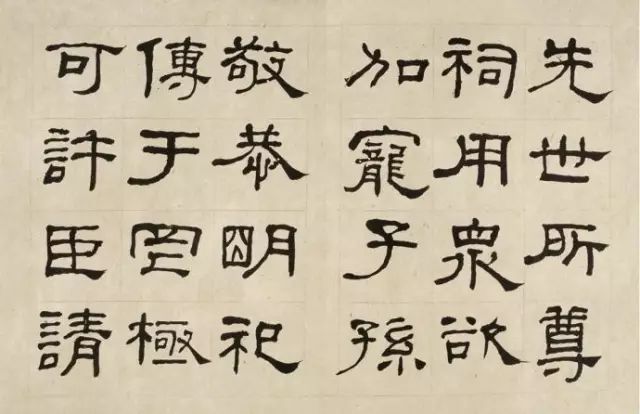 先世所尊
祠用衆欲
加寵子孫
敬恭明祀
傳于罔極
可許臣請